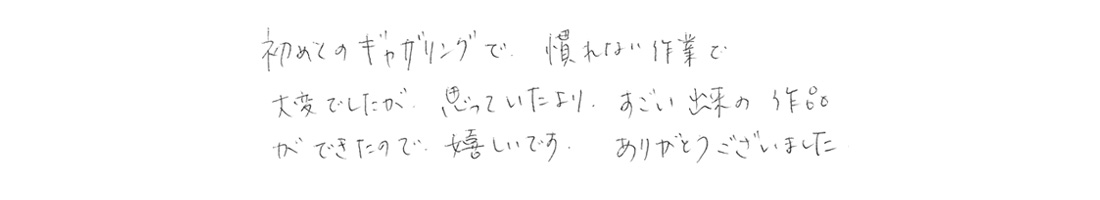 初めてのギャザリングで、慣れない作業で
大変でしたが、思っていたより、すごい出来の作品
ができたので、嬉しいです。ありがとうございました